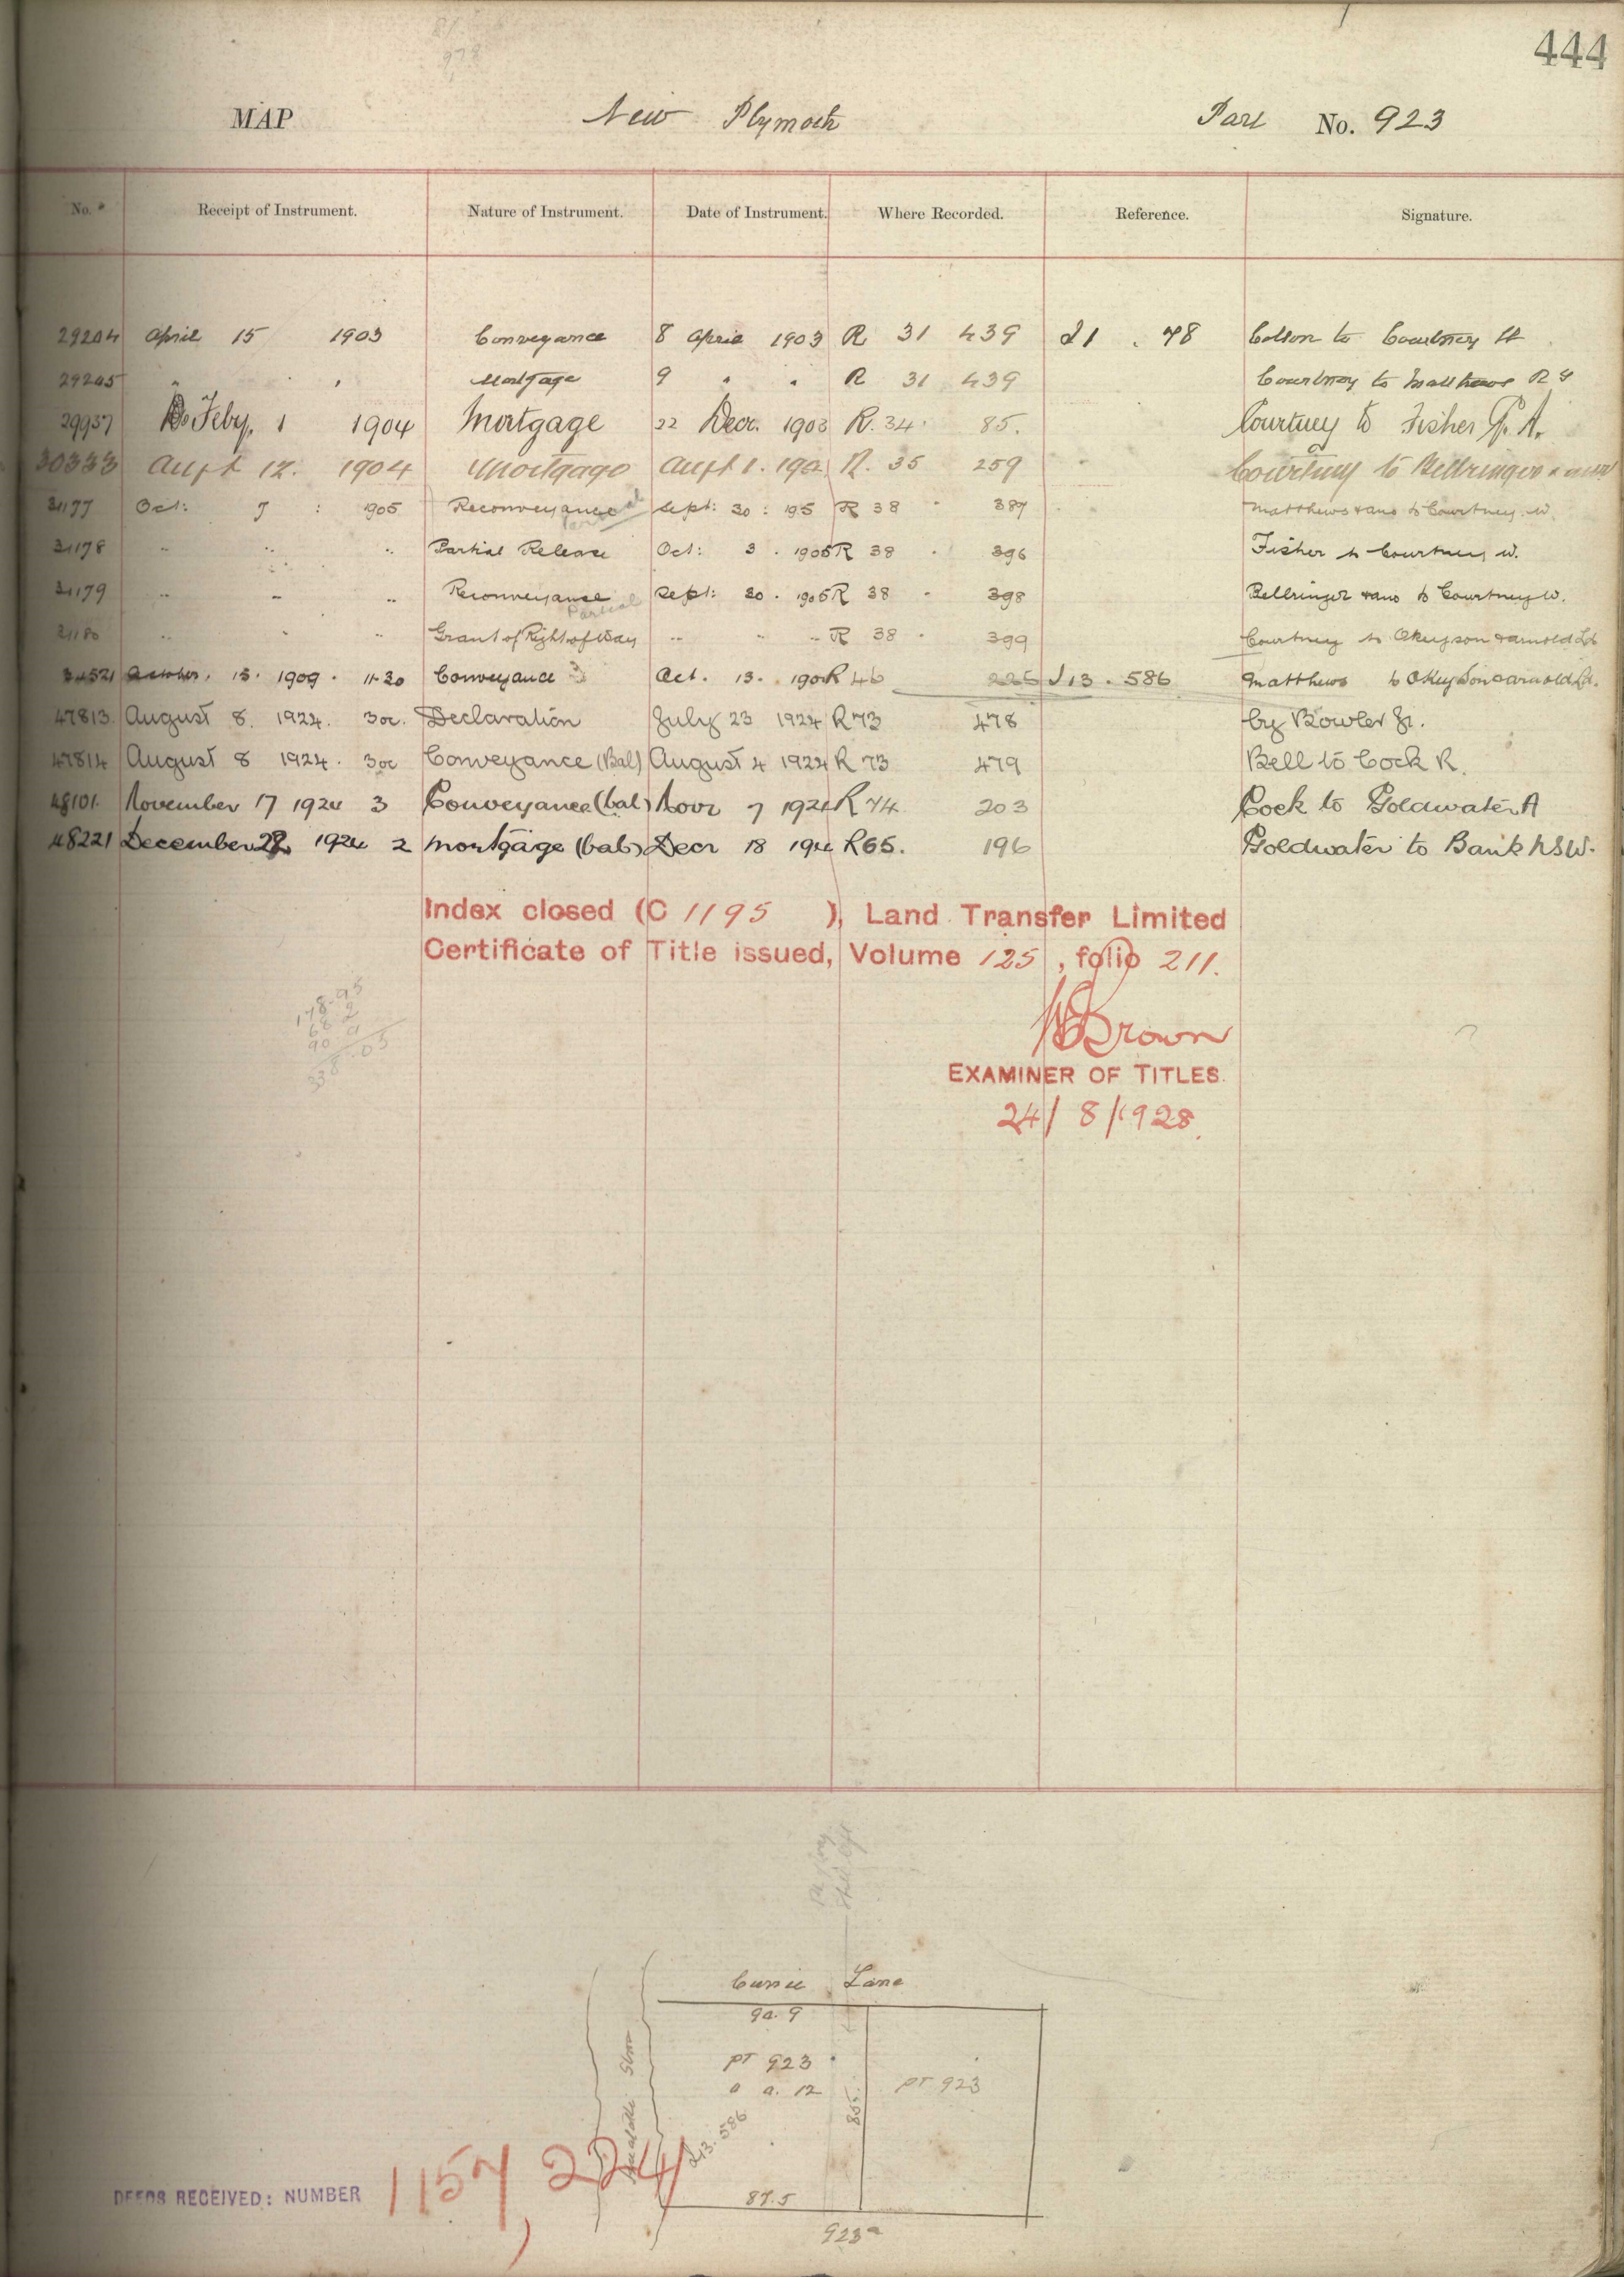 444
MAP New Plymoth Part No. 923
No. Receipt of Instrument. Nature of Instrument. Date of Instrument. Where Recorded. Reference. Signature.
29204 April 15 1903 Conveyance 8 April 1903 R 31 439 I1 . 78 Colson to Courtney
29205 " " Mortgage 9 " " R 31 439 Courtney to Matthews R G
29937 Feby. 1 1904 Mortgage 22 Decr. 1903 R. 34. 85. Courtney to Fisher G. A.
30333 Augst 12. 1904 Mortgage Augst 1. 190 R. 35 259 Courtney to Bellringer & anor
31177 Oct: 5 : 905 Reconveyance Sept: 30 : 195 R 38 " 387 Matthews & ano to Courtney. W.
31178 " " " Partial Release Oct: 3 . 1905 R 38 . 396 Fisher to Courtney W.
31179 " " " Reconveyance Partial Sept: 30 . 1905 R 38 " 398 Bellringer & ano to Courtney W.
31180 " " " Grant of Right of Way " " " R 38 . 399 Courtney to Okey Son & Arnold Ld
34521 October. 13. 1909 . 11.30 Conveyance Oct. 13. 190 R 46 226 I 13 . 586 Matthews to Okey Son & Arnold Ld.
47813 August 8. 1924. 3oc. Declaration July 23 1924 R 73 478 by Rowler Jr.
47814 August 8 1924. 3oc Conveyance (Bal) August 4 1924 R 73 479 Bell to Cock R.
48101. November 17 1924 3 Conveyance (bal) Novr 7 1924 R 74. 203 Cock to Goldwater A
48221 December 22 1924 2 Mortgage (bal) Decr 18 194 R 65. 196 Goldwater to Bank NSW.
Index closed (C 1195 ), Land Transfer Limited
Certificate of Title issued, Volume 125, folio 211.
Brown
EXAMINER OF TITLES.
24/8/1928.
Currie Lane
90.9
PT 923
0 0. 12
PT 923
855
I 13. 586
87.5
923a
DEEDS RECEIVED: NUMBER 1157, 224